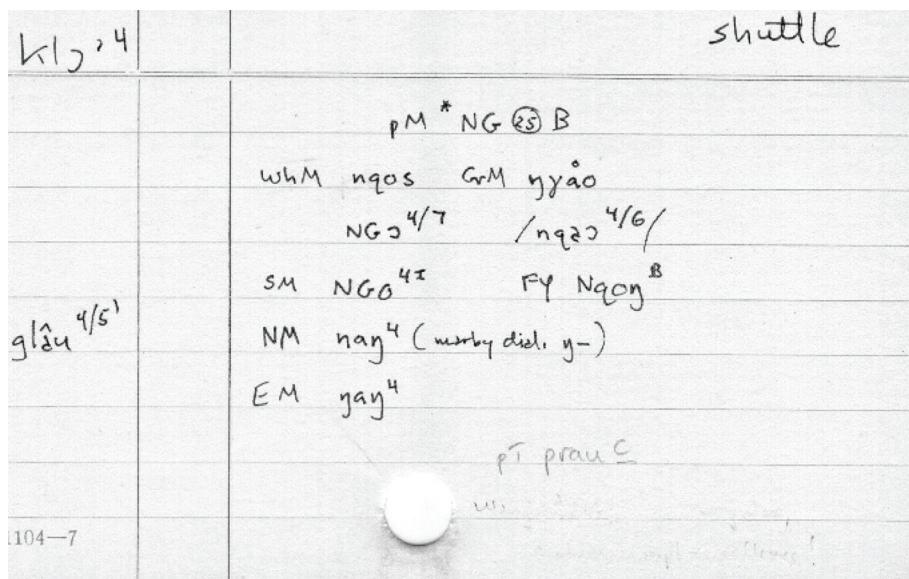 klɔ 4 shuttle
pM * NG ㉕ B
WhM nqos GrM ŋɣåo
NGɔ 4/7 /nqɔ 4/6/
SM NGo 4I FY Nqoŋ B
glâu 4/5' NM naŋ 4 ( dial. ŋ-)
EM ŋaŋ 4
pT prau C
1104—7